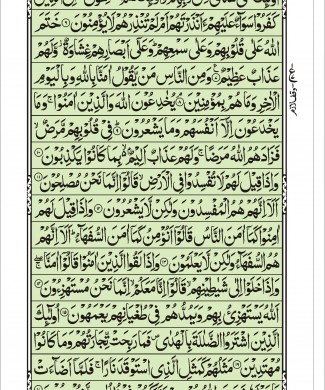 كَفَرُوۡا سَوَآءٌ عَلَيۡهِمۡ ءَاَنۡذَرۡتَهُمۡ اَمۡ لَمۡ تُنۡذِرۡهُمۡ لَا يُؤۡمِنُوۡنَ ۶ خَتَمَ
اللّٰهُ عَلٰى قُلُوۡبِهِمۡ وَعَلٰى سَمۡعِهِمۡ وَعَلٰٓى اَبۡصَارِهِمۡ غِشَاوَةٌ وَّلَهُمۡ
عَذَابٌ عَظِيۡمٌ ۷ وَمِنَ النَّاسِ مَنۡ يَّقُوۡلُ اٰمَنَّا بِاللّٰهِ وَبِالۡيَوۡمِ
الۡاٰخِرِ وَمَا هُمۡ بِمُؤۡمِنِيۡنَ ۸ يُخٰدِعُوۡنَ اللّٰهَ وَالَّذِيۡنَ اٰمَنُوۡا وَمَا
يَخۡدَعُوۡنَ اِلَّاۤ اَنۡفُسَهُمۡ وَمَا يَشۡعُرُوۡنَ ۹ فِىۡ قُلُوۡبِهِمۡ مَّرَضٌ
فَزَادَهُمُ اللّٰهُ مَرَضًا وَلَهُمۡ عَذَابٌ اَلِيۡمٌ بِمَا كَانُوۡا يَكۡذِبُوۡنَ ۱۰
وَاِذَا قِيۡلَ لَهُمۡ لَا تُفۡسِدُوۡا فِى الۡاَرۡضِ قَالُوۡاۤ اِنَّمَا نَحۡنُ مُصۡلِحُوۡنَ ۱۱
اَلَاۤ اِنَّهُمۡ هُمُ الۡمُفۡسِدُوۡنَ وَلٰكِنۡ لَّا يَشۡعُرُوۡنَ ۱۲ وَاِذَا قِيۡلَ لَهُمۡ
اٰمِنُوۡا كَمَاۤ اٰمَنَ النَّاسُ قَالُوۡاۤ اَنُؤۡمِنُ كَمَاۤ اٰمَنَ السُّفَهَآءُ اَلَاۤ اِنَّهُمۡ
هُمُ السُّفَهَآءُ وَلٰكِنۡ لَّا يَعۡلَمُوۡنَ ۱۳ وَاِذَا لَقُوا الَّذِيۡنَ اٰمَنُوۡا قَالُوۡاۤ اٰمَنَّا
وَاِذَا خَلَوۡا اِلٰى شَيٰطِيۡنِهِمۡ قَالُوۡاۤ اِنَّا مَعَكُمۡ اِنَّمَا نَحۡنُ مُسۡتَهۡزِءُوۡنَ ۱۴
اَللّٰهُ يَسۡتَهۡزِئُ بِهِمۡ وَيَمُدُّهُمۡ فِىۡ طُغۡيَانِهِمۡ يَعۡمَهُوۡنَ ۱۵ اُولٰٓئِكَ
الَّذِيۡنَ اشۡتَرَوُا الضَّلٰلَةَ بِالۡهُدٰى فَمَا رَبِحَتۡ تِّجَارَتُهُمۡ وَمَا كَانُوۡا
مُهۡتَدِيۡنَ ۱۶ مَثَلُهُمۡ كَمَثَلِ الَّذِى اسۡتَوۡقَدَ نَارًا فَلَمَّاۤ اَضَآءَتۡ